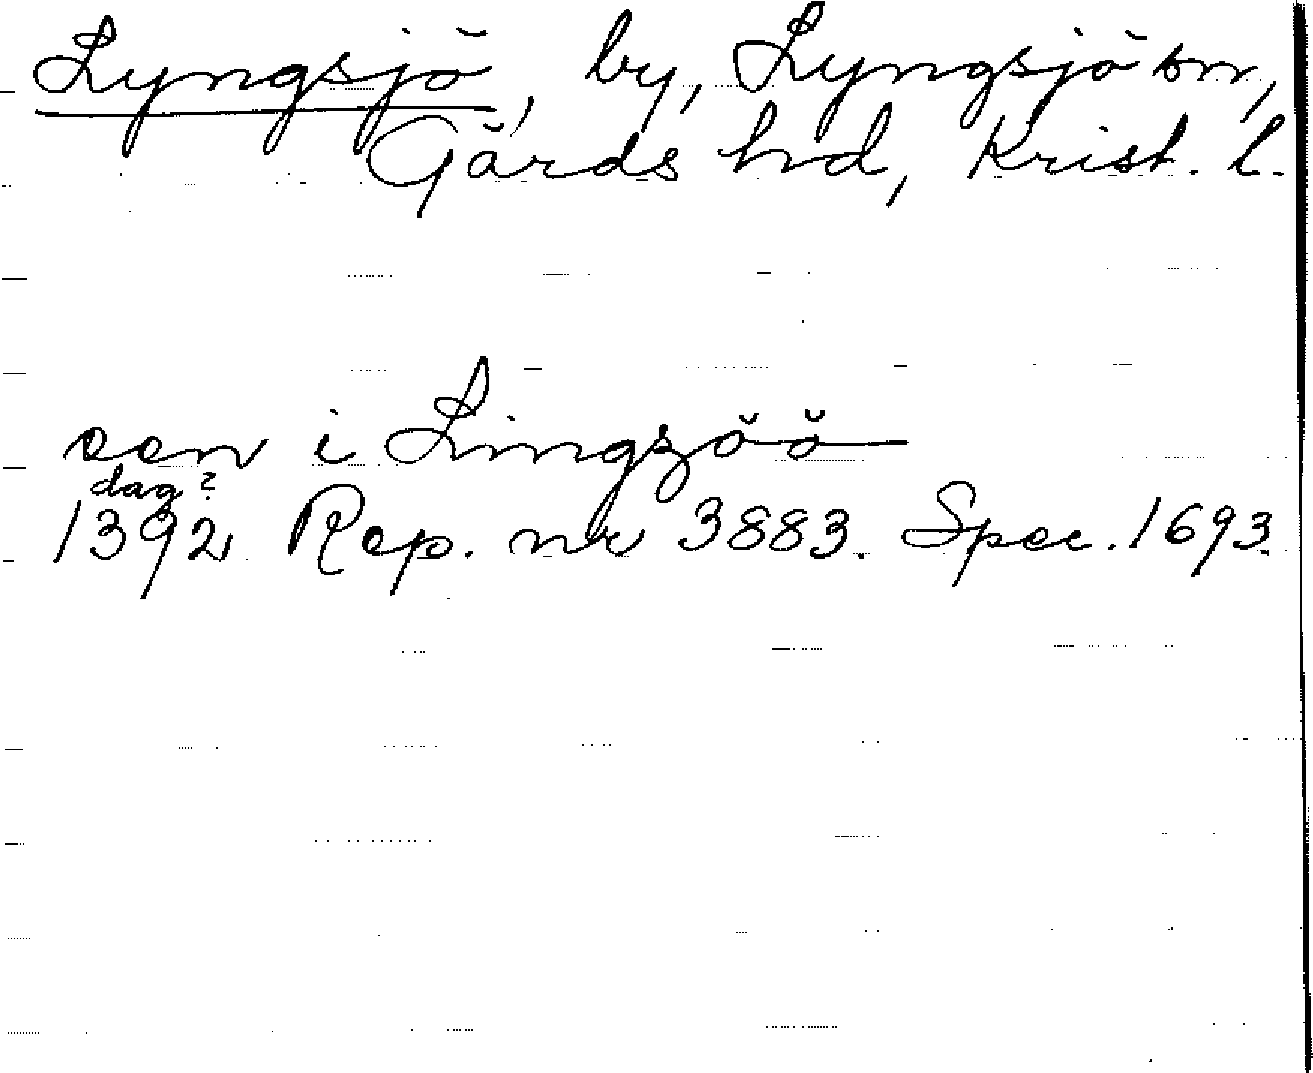 Lyngsjö, by, Lyngsjö sn,
Gärds hd, Krist. l.
een i Lingzöö
dag?
1392 Rep. nr 3883. Spec. 1693.